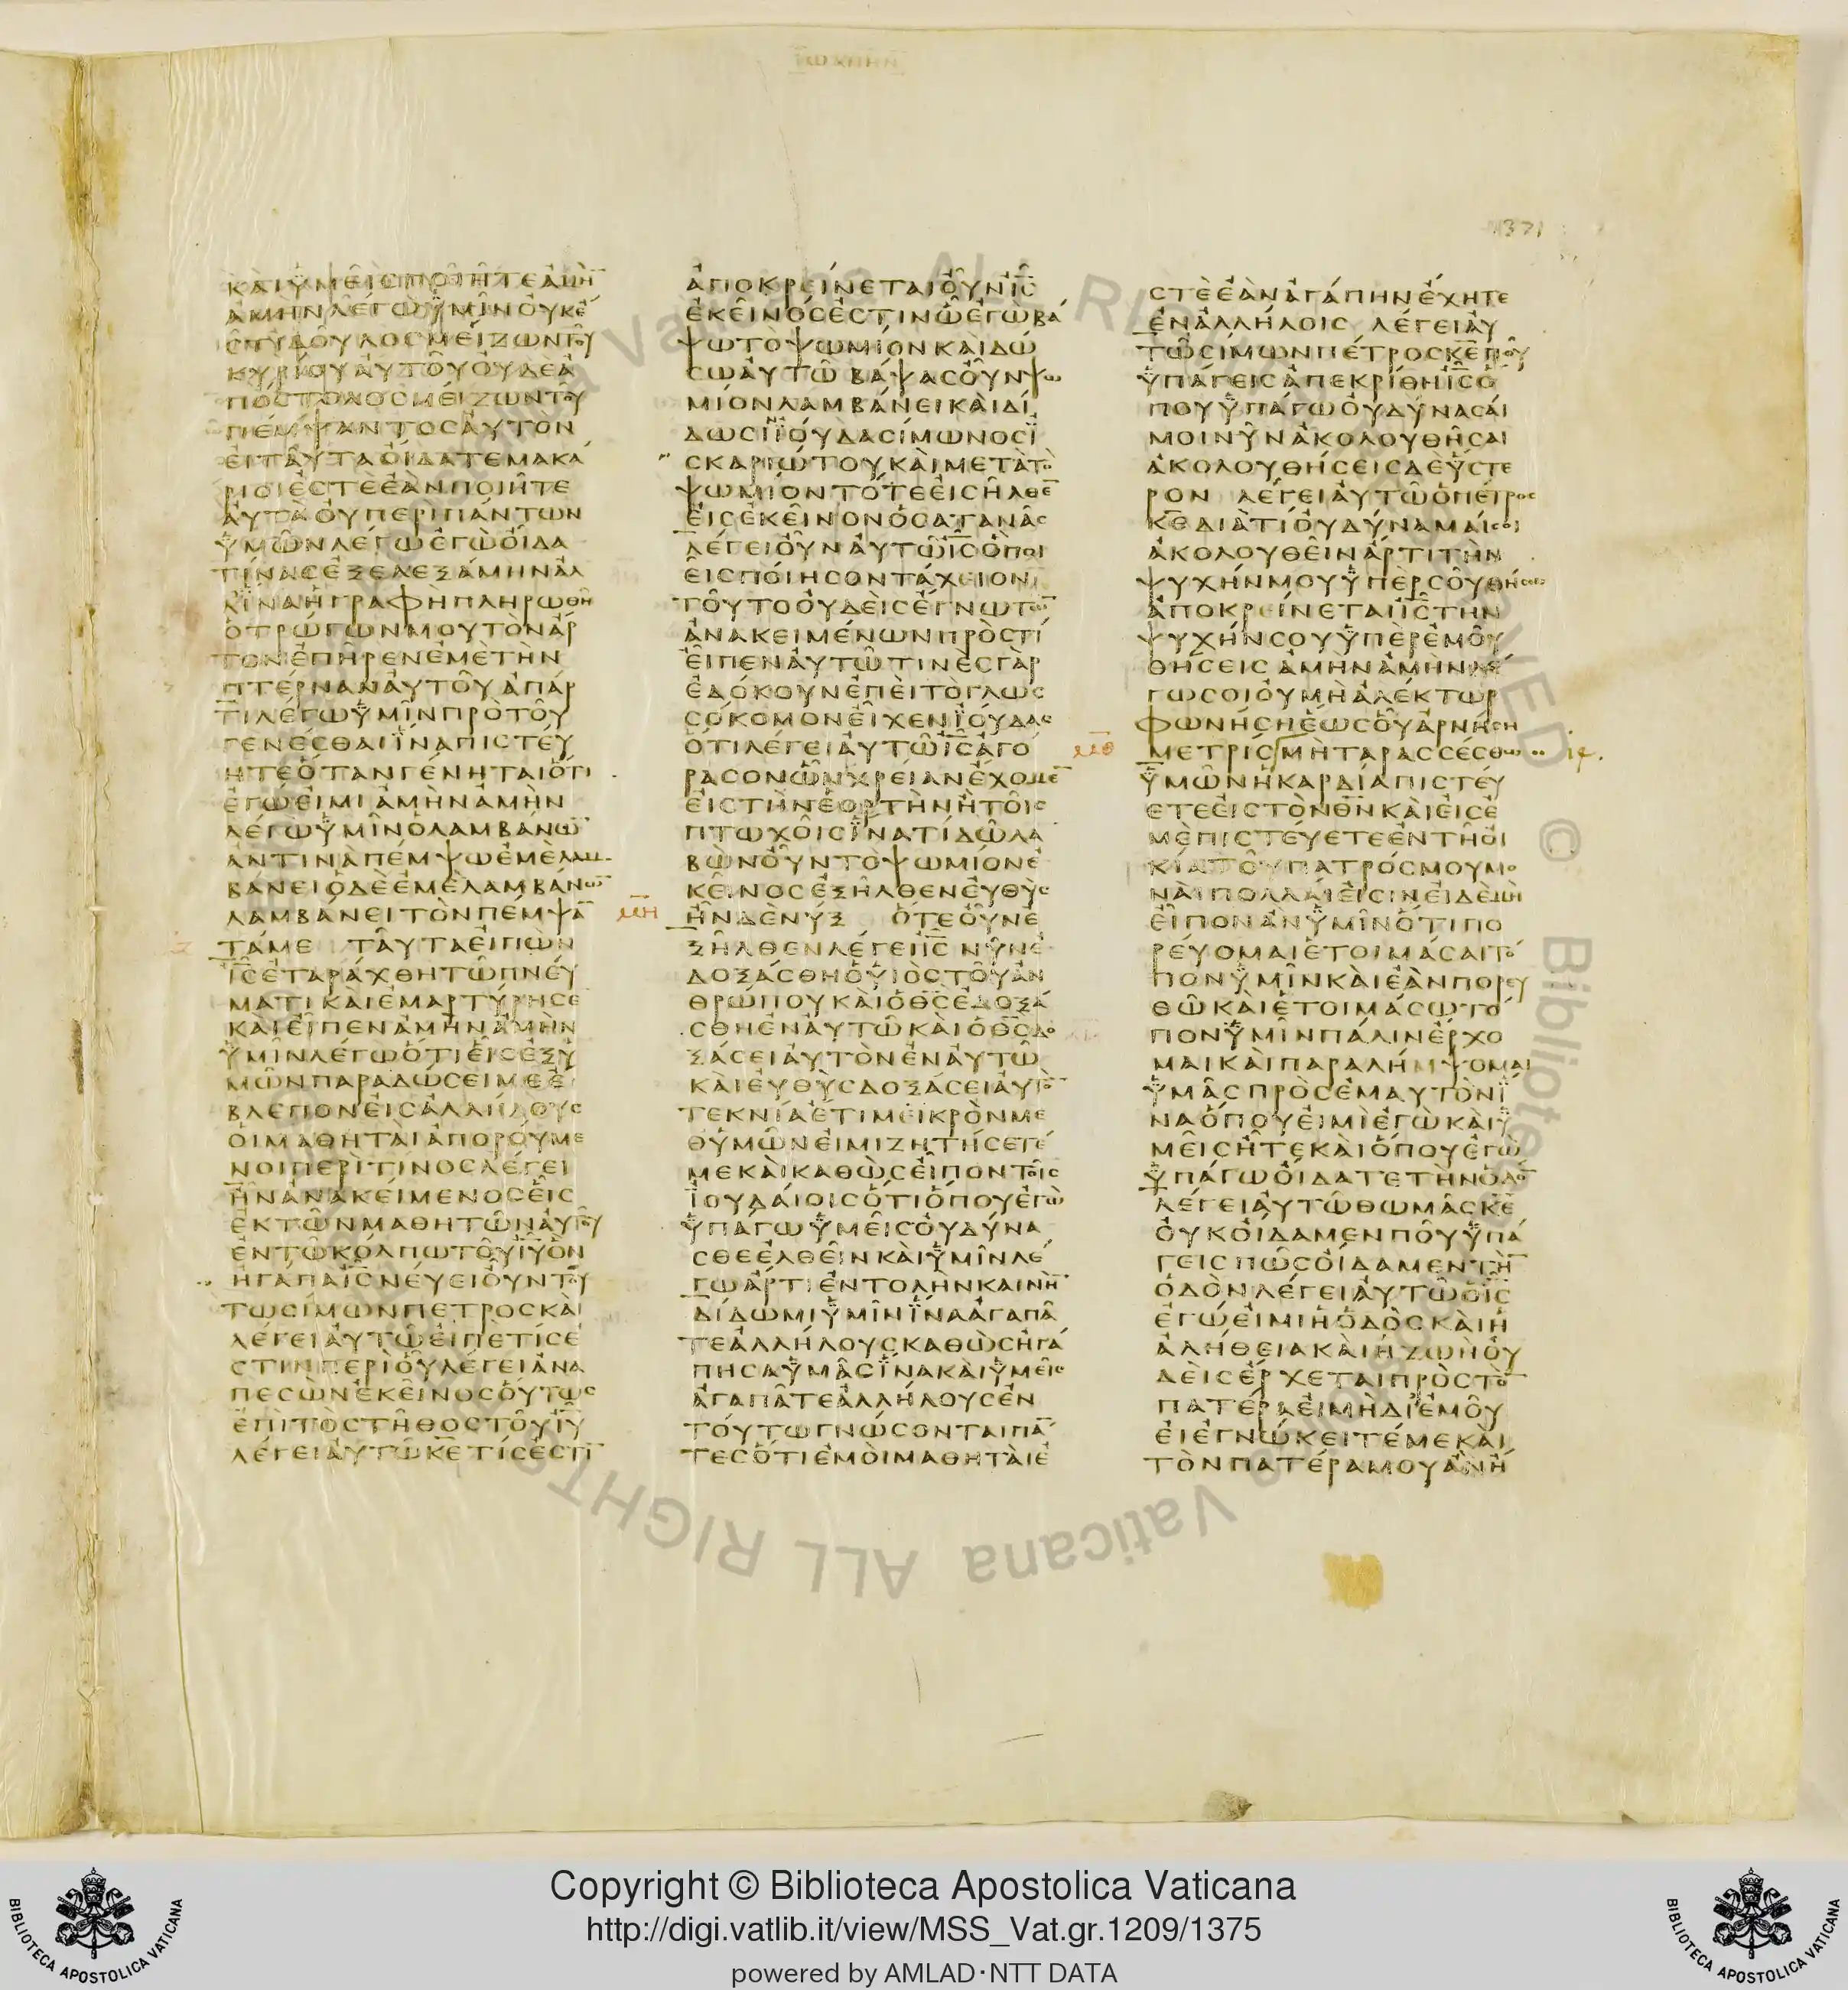 ΙΩΑΝΝΗΝ
1371
ΚΑΙΥΜΕΙΣΠΟΙΗΤΕΑΜΗ̅
ΑΜΗΝΛΕΓΩΥΜΙΝΟΥΚΕ
ΣΤΙΔΟΥΛΟΣΜΕΙΖΩΝΤΟΥ
ΚΥΡΙΟΥΑΥΤΟΥΟΥΔΕΑ
ΠΟΣΤΟΛΟΣΜΕΙΖΩΝΤΟΥ
ΠΕΜΨΑΝΤΟΣΑΥΤΟΝ
ΕΙΤΑΥΤΑΟΙΔΑΤΕΜΑΚΑ
ΡΙΟΙΕΣΤΕΕΑΝΠΟΙΗΤΕ
ΑΥΤΑΟΥΠΕΡΙΠΑΝΤΩΝ
ΥΜΩΝΛΕΓΩΕΓΩΟΙΔΑ
ΤΙΝΑΣΕΞΕΛΕΞΑΜΗΝΑΛ
ΛΙΝΑΗΓΡΑΦΗΠΛΗΡΩΘΗ
ΟΤΡΩΓΩΝΜΟΥΤΟΝΑΡ
ΤΟΝΕΠΗΡΕΝΕΜΕΤΗΝ
ΠΤΕΡΝΑΝΑΥΤΟΥΑΠΑΡ
ΤΙΛΕΓΩΥΜΙΝΠΡΟΤΟΥ
ΓΕΝΕΣΘΑΙΙΝΑΠΙΣΤΕΥ
ΗΤΕΟΤΑΝΓΕΝΗΤΑΙΟΤΙ
ΕΓΩΕΙΜΙΑΜΗΝΑΜΗΝ
ΛΕΓΩΥΜΙΝΟΛΑΜΒΑΝΩ̅
ΑΝΤΙΝΑΠΕΜΨΩΕΜΕΛΑΜ
ΒΑΝΕΙΟΔΕΕΜΕΛΑΜΒΑΝΩ̅
ΛΑΜΒΑΝΕΙΤΟΝΠΕΜΨΑ̅
ΤΑΜΕ ΤΑΥΤΑΕΙΠΩΝ
Ι̅Σ̅ΕΤΑΡΑΧΘΗΤΩΠΝΕΥ
ΜΑΤΙΚΑΙΕΜΑΡΤΥΡΗΣΕ
ΚΑΙΕΙΠΕΝΑΜΗΝΑΜΗΝ
ΥΜΙΝΛΕΓΩΟΤΙΕΙΣΕΞΥ
ΜΩΝΠΑΡΑΔΩΣΕΙΜΕΕ
ΒΛΕΠΟΝΕΙΣΑΛΛΗΛΟΥΣ
ΟΙΜΑΘΗΤΑΙΑΠΟΡΟΥΜΕ
ΝΟΙΠΕΡΙΤΙΝΟΣΛΕΓΕΙ
ΗΝΑΝΑΚΕΙΜΕΝΟΣΕΙΣ
ΕΚΤΩΝΜΑΘΗΤΩΝΑΥΤΟΥ
ΕΝΤΩΚΟΛΠΩΤΟΥΙ̅Υ̅ΟΝ
ΗΓΑΠΑΙ̅Σ̅ΝΕΥΕΙΟΥΝΤΟΥ
ΤΩΣΙΜΩΝΠΕΤΡΟΣΚΑΙ
ΛΕΓΕΙΑΥΤΩΕΙΠΕΤΙΣΕ
ΣΤΙΝΠΕΡΙΟΥΛΕΓΕΙΑΝΑ
ΠΕΣΩΝΕΚΕΙΝΟΣΟΥΤΩΣ
ΕΠΙΤΟΣΤΗΘΟΣΤΟΥΙ̅Υ̅
ΛΕΓΕΙΑΥΤΩΚ̅Ε̅ΤΙΣΕΣΤΙ̅
ΑΠΟΚΡΕΙΝΕΤΑΙΟΥΝΙ̅Σ̅
ΕΚΕΙΝΟΣΕΣΤΙΝΩΕΓΩΒΑ
ΨΩΤΟΨΩΜΙΟΝΚΑΙΔΩ
ΣΩΑΥΤΩΒΑΨΑΣΟΥΝΨΩ
ΜΙΟΝΛΑΜΒΑΝΕΙΚΑΙΔΙ
ΔΩΣΙΙΟΥΔΑΣΙΜΩΝΟΣΙ
ΣΚΑΡΙΩΤΟΥΚΑΙΜΕΤΑΤΟ
ΨΩΜΙΟΝΤΟΤΕΕΙΣΗΛΘΕ̅
ΕΙΣΕΚΕΙΝΟΝΟΣΑΤΑΝΑΣ
ΛΕΓΕΙΟΥΝΑΥΤΩΙ̅Σ̅ΟΠΟΙ
ΕΙΣΠΟΙΗΣΟΝΤΑΧΕΙΟΝ
ΤΟΥΤΟΟΥΔΕΙΣΕΓΝΩΤΩ̅
ΑΝΑΚΕΙΜΕΝΩΝΠΡΟΣΤΙ
ΕΙΠΕΝΑΥΤΩΤΙΝΕΣΓΑΡ
ΕΔΟΚΟΥΝΕΠΕΙΤΟΓΛΩΣ
ΣΟΚΟΜΟΝΕΙΧΕΝΙΟΥΔΑΣ
ΟΤΙΛΕΓΕΙΑΥΤΩΙ̅Σ̅ΑΓΟ
ΡΑΣΟΝΩΝΧΡΕΙΑΝΕΧΟΜΕ̅
ΕΙΣΤΗΝΕΟΡΤΗΝΗΤΟΙΣ
ΠΤΩΧΟΙΣΙΝΑΤΙΔΩΛΑ
ΒΩΝΟΥΝΤΟΨΩΜΙΟΝΕ
ΚΕΙΝΟΣΕΞΗΛΘΕΝΕΥΘΥΣ
ΜΗ ΗΝΔΕΝΥΞ ΟΤΕΟΥΝΕ
ΞΗΛΘΕΝΛΕΓΕΙΙ̅Σ̅ ΝΥΝΕ
ΔΟΞΑΣΘΗΟΥΙΟΣΤΟΥΑΝ
ΘΡΩΠΟΥΚΑΙΟΘ̅Σ̅ΕΔΟΞΑ
ΣΘΗΕΝΑΥΤΩΚΑΙΟΘ̅Σ̅ΔΟ
ΞΑΣΕΙΑΥΤΟΝΕΝΑΥΤΩ
ΚΑΙΕΥΘΥΣΔΟΞΑΣΕΙΑΥΤΟ̅
ΤΕΚΝΙΑΕΤΙΜΕΙΚΡΟΝΜΕ
ΘΥΜΩΝΕΙΜΙΖΗΤΗΣΕΤΕ
ΜΕΚΑΙΚΑΘΩΣΕΙΠΟΝΤΟΙΣ
ΙΟΥΔΑΙΟΙΣΟΤΙΟΠΟΥΕΓΩ
ΥΠΑΓΩΥΜΕΙΣΟΥΔΥΝΑ
ΣΘΕΕΛΘΕΙΝΚΑΙΥΜΙΝΛΕ
ΓΩΑΡΤΙΕΝΤΟΛΗΝΚΑΙΝΗ̅
ΔΙΔΩΜΙΥΜΙΝΙΝΑΑΓΑΠΑ
ΤΕΑΛΛΗΛΟΥΣΚΑΘΩΣΗΓΑ
ΠΗΣΑΥΜΑΣΙΝΑΚΑΙΥΜΕΙΣ
ΑΓΑΠΑΤΕΑΛΛΗΛΟΥΣΕΝ
ΤΟΥΤΩΓΝΩΣΟΝΤΑΙΠΑ̅
ΤΕΣΟΤΙΕΜΟΙΜΑΘΗΤΑΙΕ
ΣΤΕΕΑΝΑΓΑΠΗΝΕΧΗΤΕ
ΕΝΑΛΛΗΛΟΙΣ ΛΕΓΕΙΑΥ
ΤΩΣΙΜΩΝΠΕΤΡΟΣΚ̅Ε̅ΠΟΥ
ΥΠΑΓΕΙΣΑΠΕΚΡΙΘΗΙ̅Σ̅Ο
ΠΟΥΥΠΑΓΩΟΥΔΥΝΑΣΑΙ
ΜΟΙΝΥΝΑΚΟΛΟΥΘΗΣΑΙ
ΑΚΟΛΟΥΘΗΣΕΙΣΔΕΥΣΤΕ
ΡΟΝ ΛΕΓΕΙΑΥΤΩΟΠΕΤΡΟΣ
Κ̅Ε̅ΔΙΑΤΙΟΥΔΥΝΑΜΑΙΣΟΙ
ΑΚΟΛΟΥΘΕΙΝΑΡΤΙΤΗΝ
ΨΥΧΗΝΜΟΥΥΠΕΡΣΟΥΘΗΣΩ
ΑΠΟΚΡΕΙΝΕΤΑΙΙ̅Σ̅ΤΗΝ
ΨΥΧΗΝΣΟΥΥΠΕΡΕΜΟΥ
ΘΗΣΕΙΣΑΜΗΝΑΜΗΝΛΕ
ΓΩΣΟΙΟΥΜΗΑΛΕΚΤΩΡ
ΦΩΝΗΣΗΕΩΣΟΥΑΡΝΗΣΗ
ΜΘ ΜΕΤΡΙΣΜΗΤΑΡΑΣΣΕΣΘΩ
ΥΜΩΝΗΚΑΡΔΙΑΠΙΣΤΕΥ
ΕΤΕΕΙΣΤΟΝΘ̅Ν̅ΚΑΙΕΙΣΕ
ΜΕΠΙΣΤΕΥΕΤΕΕΝΤΗΟΙ
ΚΙΑΤΟΥΠΑΤΡΟΣΜΟΥΜΟ
ΝΑΙΠΟΛΛΑΙΕΙΣΙΝΕΙΔΕΜΗ
ΕΙΠΟΝΑΝΥΜΙΝΟΤΙΠΟ
ΡΕΥΟΜΑΙΕΤΟΙΜΑΣΑΙΤΟ
ΠΟΝΥΜΙΝΚΑΙΕΑΝΠΟΡΕΥ
ΘΩΚΑΙΕΤΟΙΜΑΣΩΤΟ
ΠΟΝΥΜΙΝΠΑΛΙΝΕΡΧΟ
ΜΑΙΚΑΙΠΑΡΑΛΗΜΨΟΜΑΙ
ΥΜΑΣΠΡΟΣΕΜΑΥΤΟΝΙ
ΝΑΟΠΟΥΕΙΜΙΕΓΩΚΑΙΥ
ΜΕΙΣΗΤΕΚΑΙΟΠΟΥΕΓΩ
ΥΠΑΓΩΟΙΔΑΤΕΤΗΝΟΔΟ̅
ΛΕΓΕΙΑΥΤΩΘΩΜΑΣΚ̅Ε̅
ΟΥΚΟΙΔΑΜΕΝΠΟΥΥΠΑ
ΓΕΙΣΠΩΣΟΙΔΑΜΕΝΤΗ̅
ΟΔΟΝΛΕΓΕΙΑΥΤΩΟΙ̅Σ̅
ΕΓΩΕΙΜΙΗΟΔΟΣΚΑΙΗ
ΑΛΗΘΕΙΑΚΑΙΗΖΩΗΟΥ
ΔΕΙΣΕΡΧΕΤΑΙΠΡΟΣΤΟ̅
ΠΑΤΕΡΑΕΙΜΗΔΙΕΜΟΥ
ΕΙΕΓΝΩΚΕΙΤΕΜΕΚΑΙ
ΤΟΝΠΑΤΕΡΑΜΟΥΑΝΗ
Copyright © Biblioteca Apostolica Vaticana
http://digi.vatlib.it/view/MSS_Vat.gr.1209/1375
powered by AMLAD·NTT DATA
BIBLIOTECA APOSTOLICA VATICANA
BIBLIOTECA APOSTOLICA VATICANA